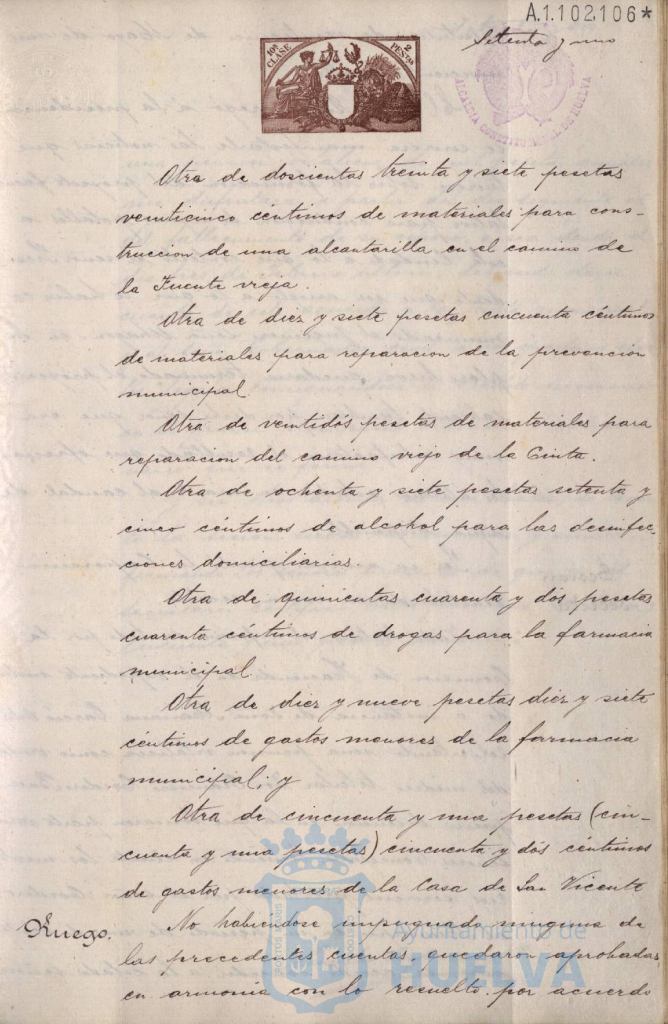 A.1.102.106*
Setenta y uno
10ª CLASE
2 PESETAS
ALCALDIA CONSTITUCIONAL DE HUELVA
Otra de doscientas treinta y siete pesetas
veinticinco céntimos de materiales para cons-
truccion de una alcantarilla en el camino de
la Fuente vieja.
Otra de diez y siete pesetas cincuenta céntimos
de materiales para reparacion de la prevención
municipal
Otra de veintidós pesetas de materiales para
reparacion del camino viejo de la Cinta.
Otra de ochenta y siete pesetas setenta y
cinco céntimos de alcohol para las desinfec-
ciones domiciliarias.
Otra de quinientas cuarenta y dos pesetas
cuarenta céntimos de drogas para la farmacia
municipal
Otra de diez y nueve pesetas diez y siete
céntimos de gastos menores de la farmacia
municipal; y
Otra de cincuenta y una pesetas (cin-
cuenta y una pesetas) cincuenta y dós céntimos
de gastos menores de la Casa de San Vicente
Ruego.
No habiéndose impugnado ninguna de
las precedentes cuentas, quedaron aprobadas
en armonía con lo resuelto por acuerdo
Ayuntamiento de
HUELVA